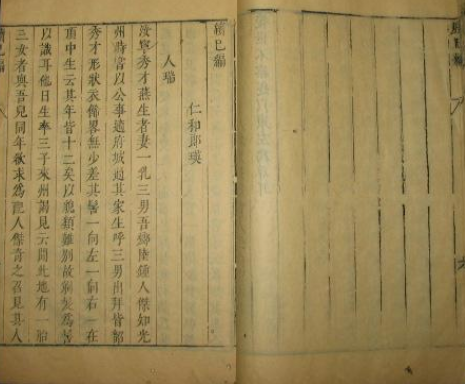 續巳編
續巳編
仁和郎瑛
人瑞
汝寧秀才燕生者妻一乳三男吾鄉陸鍾人傑知光
州時嘗以公事適府城過其家生呼三男出拜皆韶
秀才形狀衣飾畧無少差其髻一向左一向右一在
頂中生云其年皆十二矣以貌類難别故剃髪爲髻
以識耳他日生率三子來州謁見云聞此地有一胎
三女者與吾兒同年欲求爲配人傑奇之召見其人
續巳編